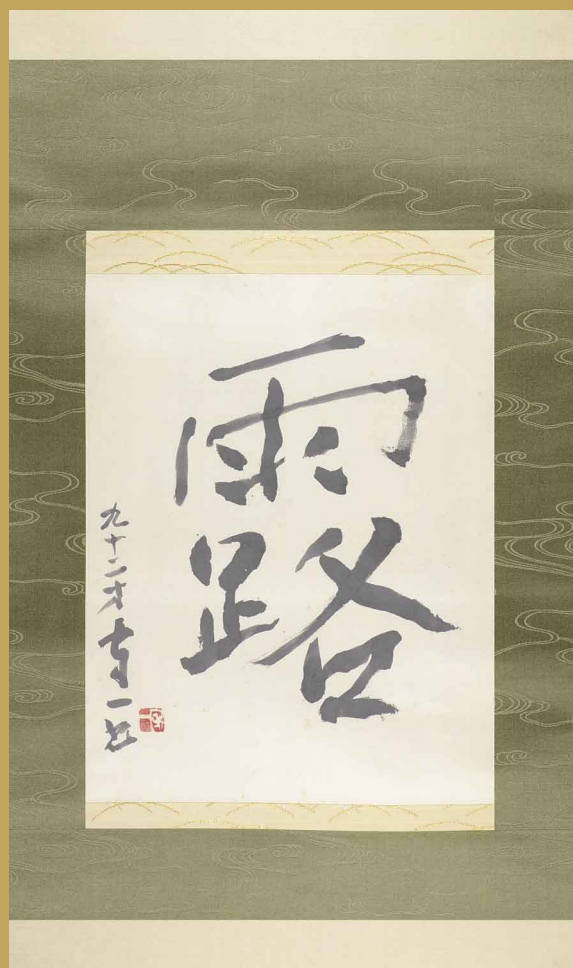 露
九十二才